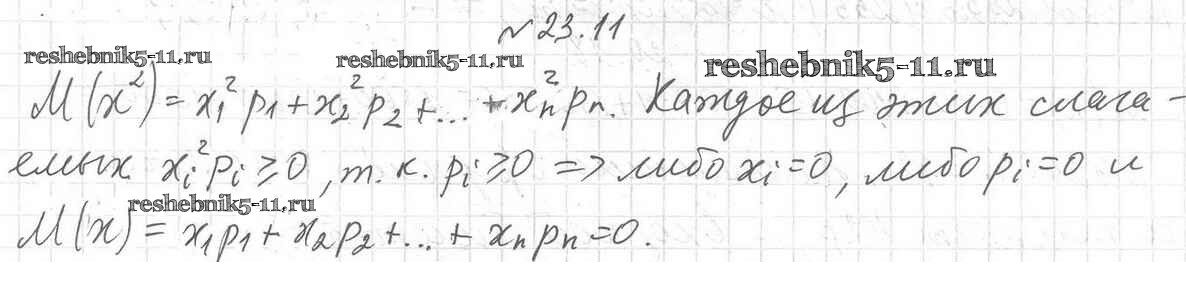 №23.11
reshebnik5-11.ru reshebnik5-11.ru reshebnik5-11.ru
M(x²)=x₁²p₁+x₂²p₂+...+xₙ²pₙ. Каждое из этих слага-
емых xᵢ²pᵢ≥0, т.к. pᵢ≥0 => либо xᵢ=0, либо pᵢ=0 и
reshebnik5-11.ru
M(x)=x₁p₁+x₂p₂+...+xₙpₙ=0.